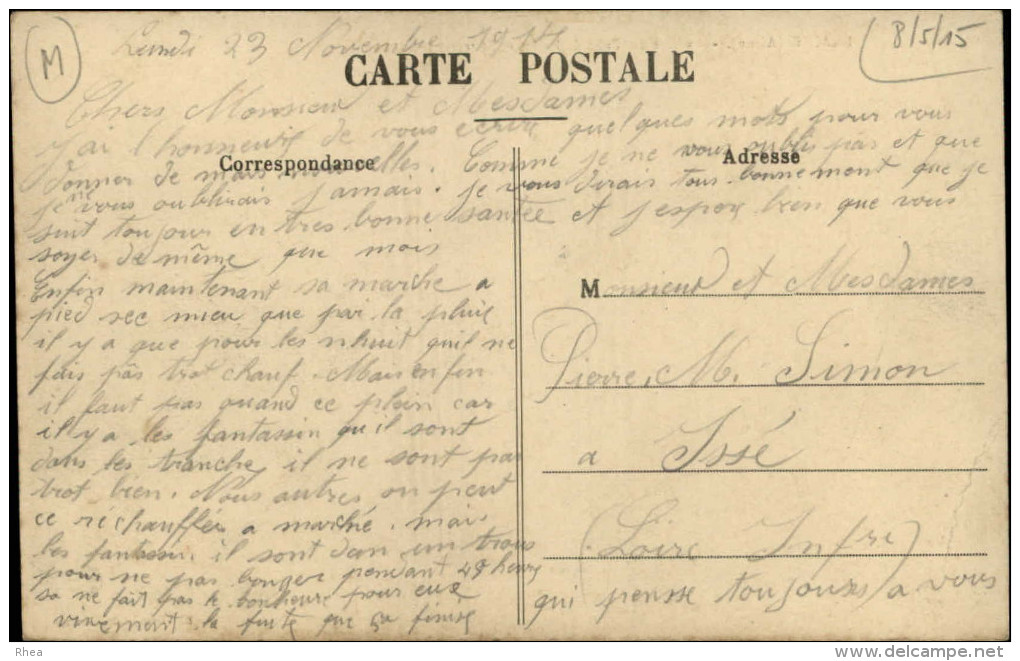 M
8/5/15
Lundi 23 Novembre 1914
CARTE POSTALE
Chers Monsieur et Mesdames
j'ai l'honneur de vous ecrire quelques mots pour vous
Correspondance
Adresse
donner de mais nouvelles. Comme je ne vous oublis pas et que
je ne vous oublirais jamais. je vous dirais tous bonnement que je
suit toujour en tres bonne santée et j'espere bien que vous
soyer de même que mois
Enfin maintenant sa marche a
pied sec mieu que par la pluie
il y a que pour les nhuit quil ne
fais pas trot chauf. Mais enfin
il faut pas quand ce plain car
il y a les fantassin qu'il sont
dans les tranche, il ne sont pas
trot bien. Nous autres on peut
ce réchauffer a marché. mais
les fantassin il sont dan un trous
pour ne pas bouger pendant 48 heures
sa ne fait pas le bonheure pour eux
vivement la fuite que sa finise
Monsieur et Mesdames
Pierre, M. Simon
a Issé
(Loire Infre)
qui pensse toujours a vous
Rhea
www.delcampe.net